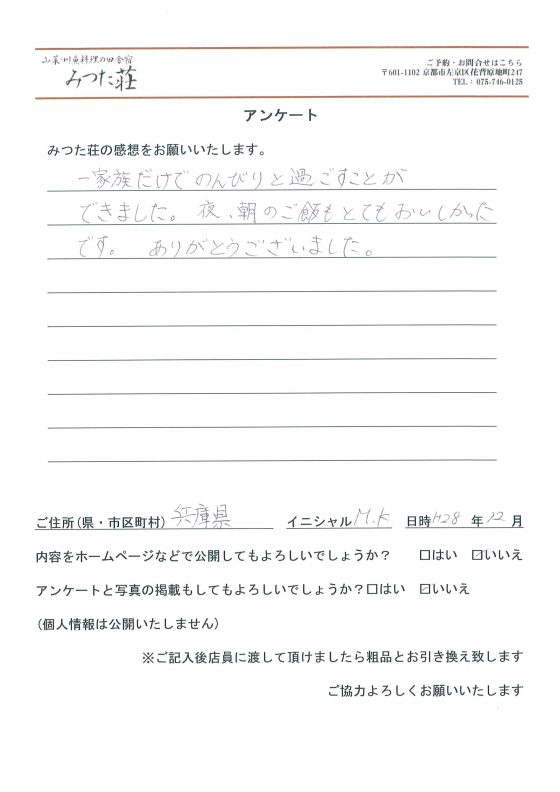 山菜・川魚料理の田舎宿
みつた荘
ご予約・お問合せはこちら
〒601-1102 京都市左京区花背原地町247
TEL：075-746-0125
アンケート
みつた荘の感想をお願いいたします。
一家族だけでのんびりと過ごすことが
できました。夜、朝のご飯もとてもおいしかった
です。 ありがとうございました。
ご住所(県・市区町村) 兵庫県 イニシャル M.K 日時 H28 年 12 月
内容をホームページなどで公開してもよろしいでしょうか？ □はい ☑いいえ
アンケートと写真の掲載もしてもよろしいでしょうか？□はい ☑いいえ
(個人情報は公開いたしません)
※ご記入後店員に渡して頂けましたら粗品とお引き換え致します
ご協力よろしくお願いいたします